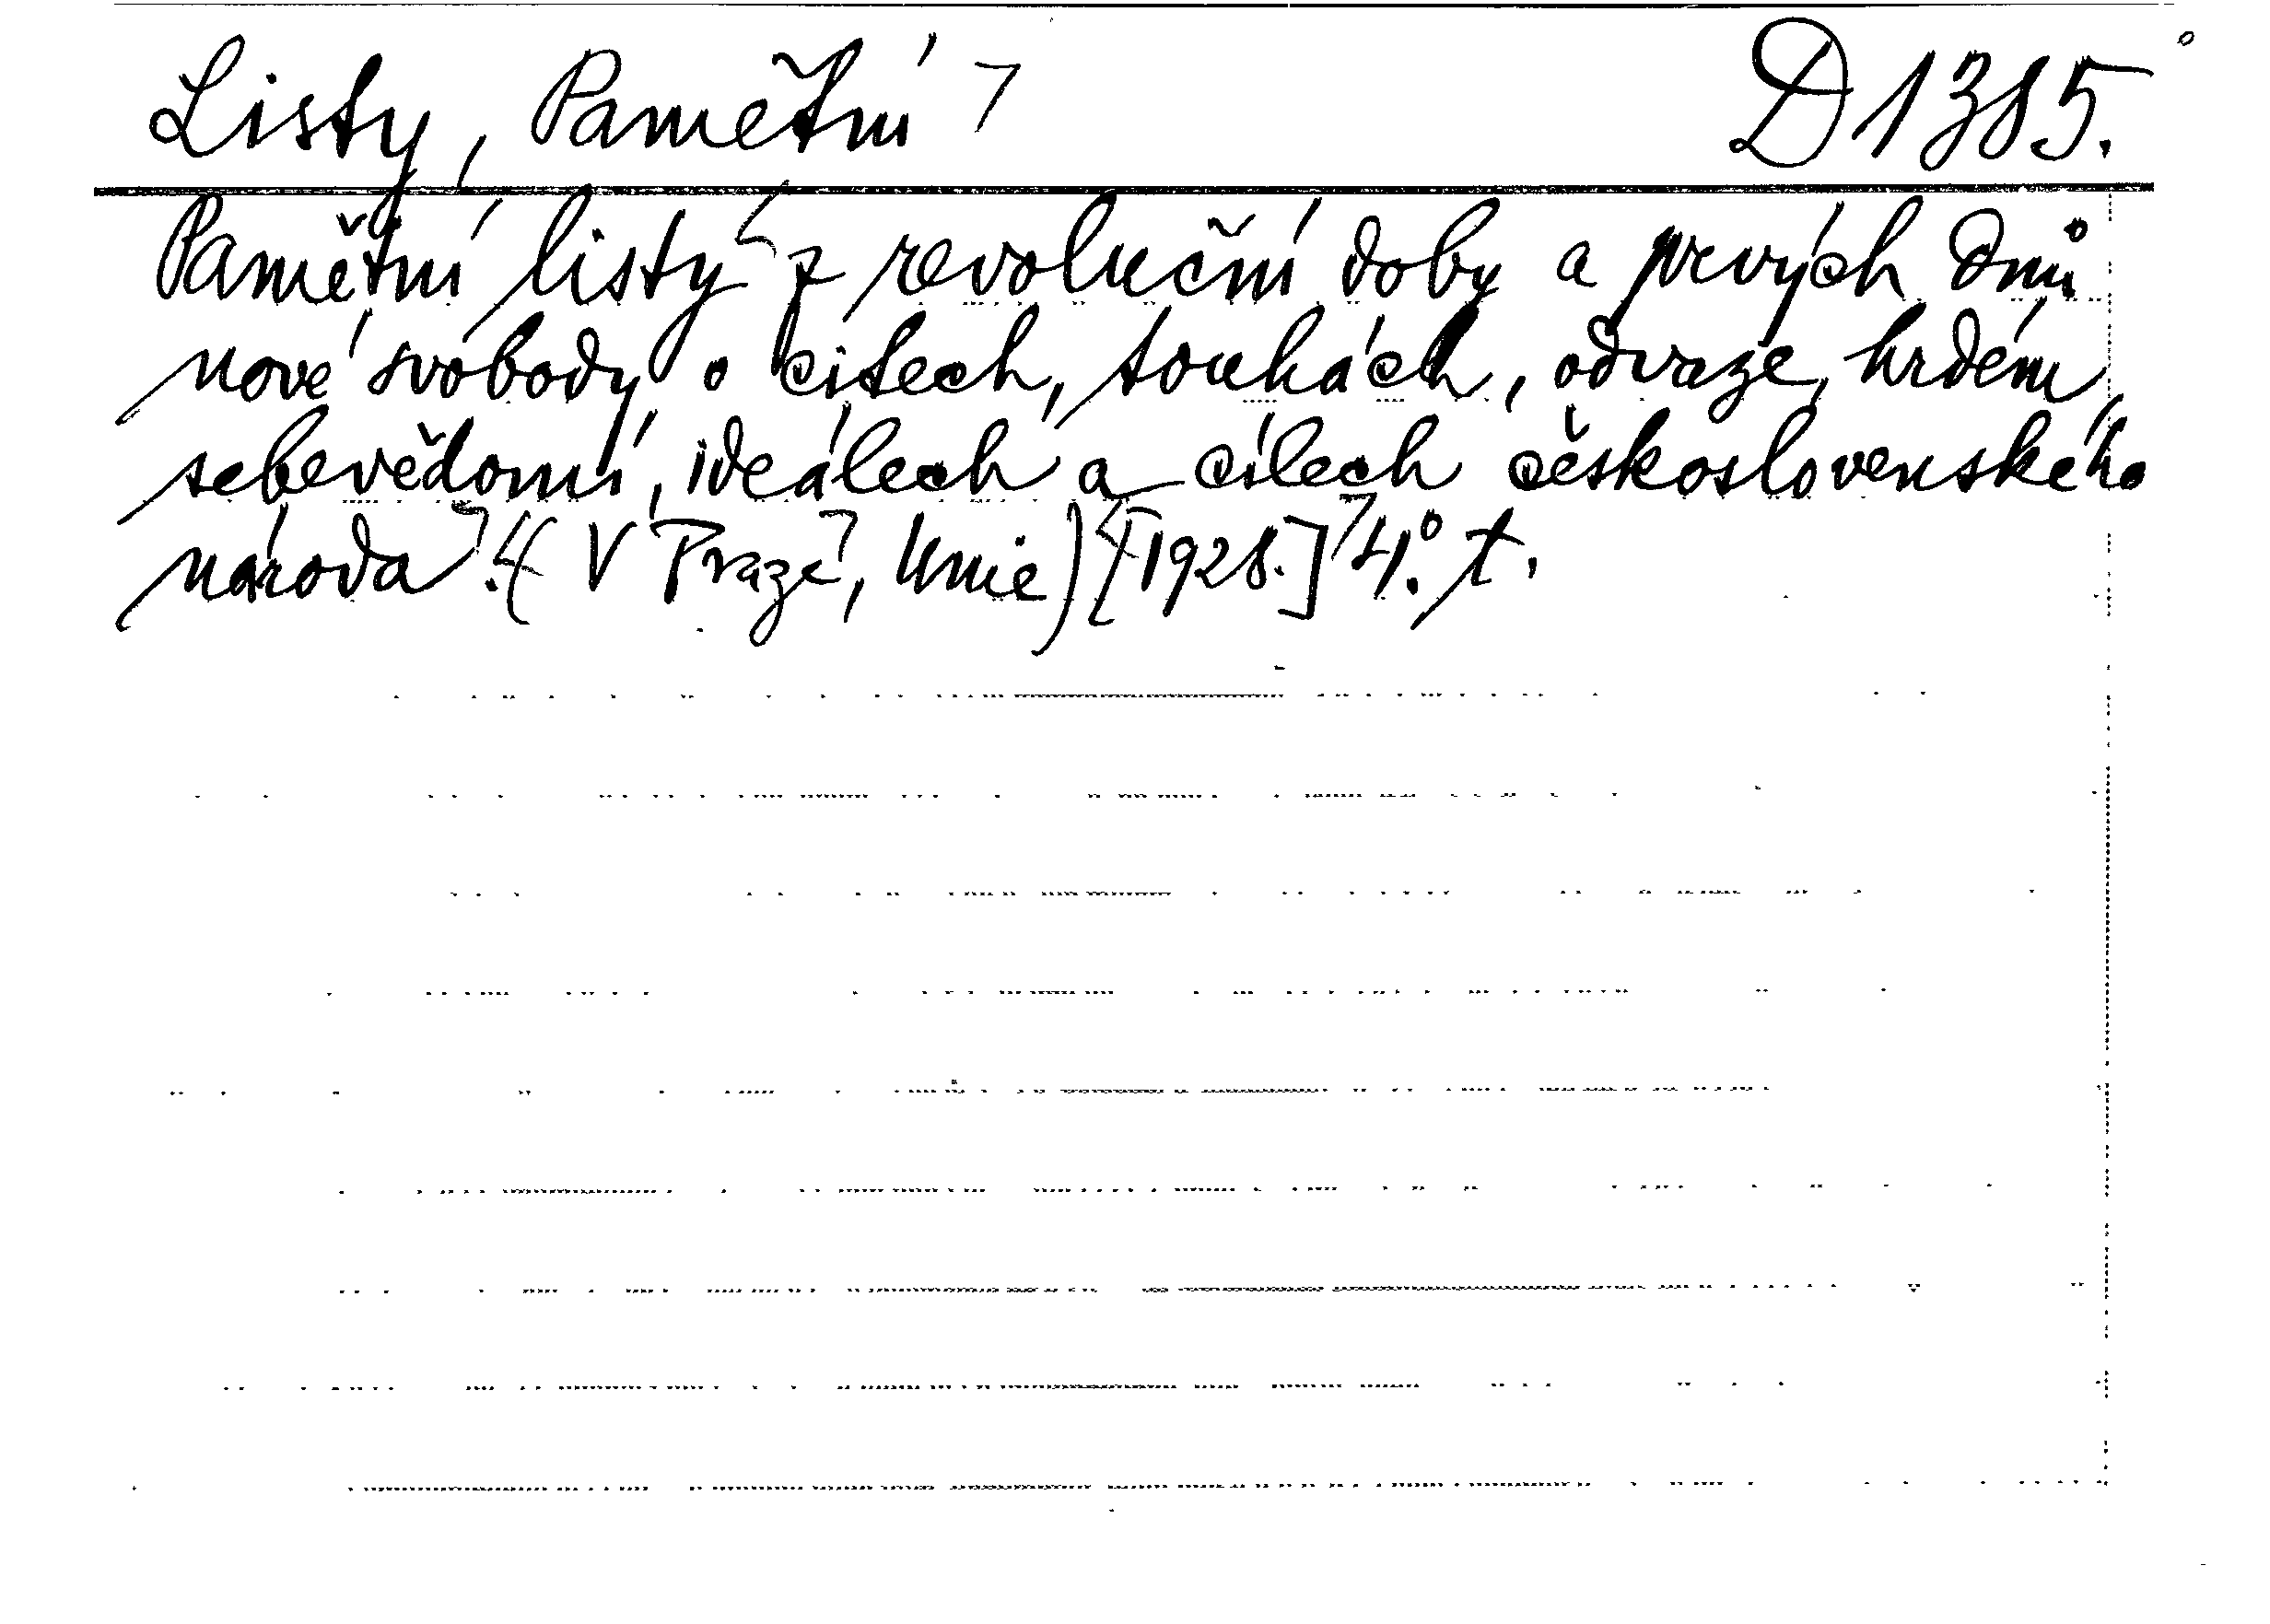 Listy, Pamětní D 1385.
Pamětní listy z revoluční doby a prvých dnů
nové svobody o citech, touhách, odvaze, hrdém
sebevědomí, ideálech a cílech československého
národa. (V Praze, Unie) [1928.] 4.° t.